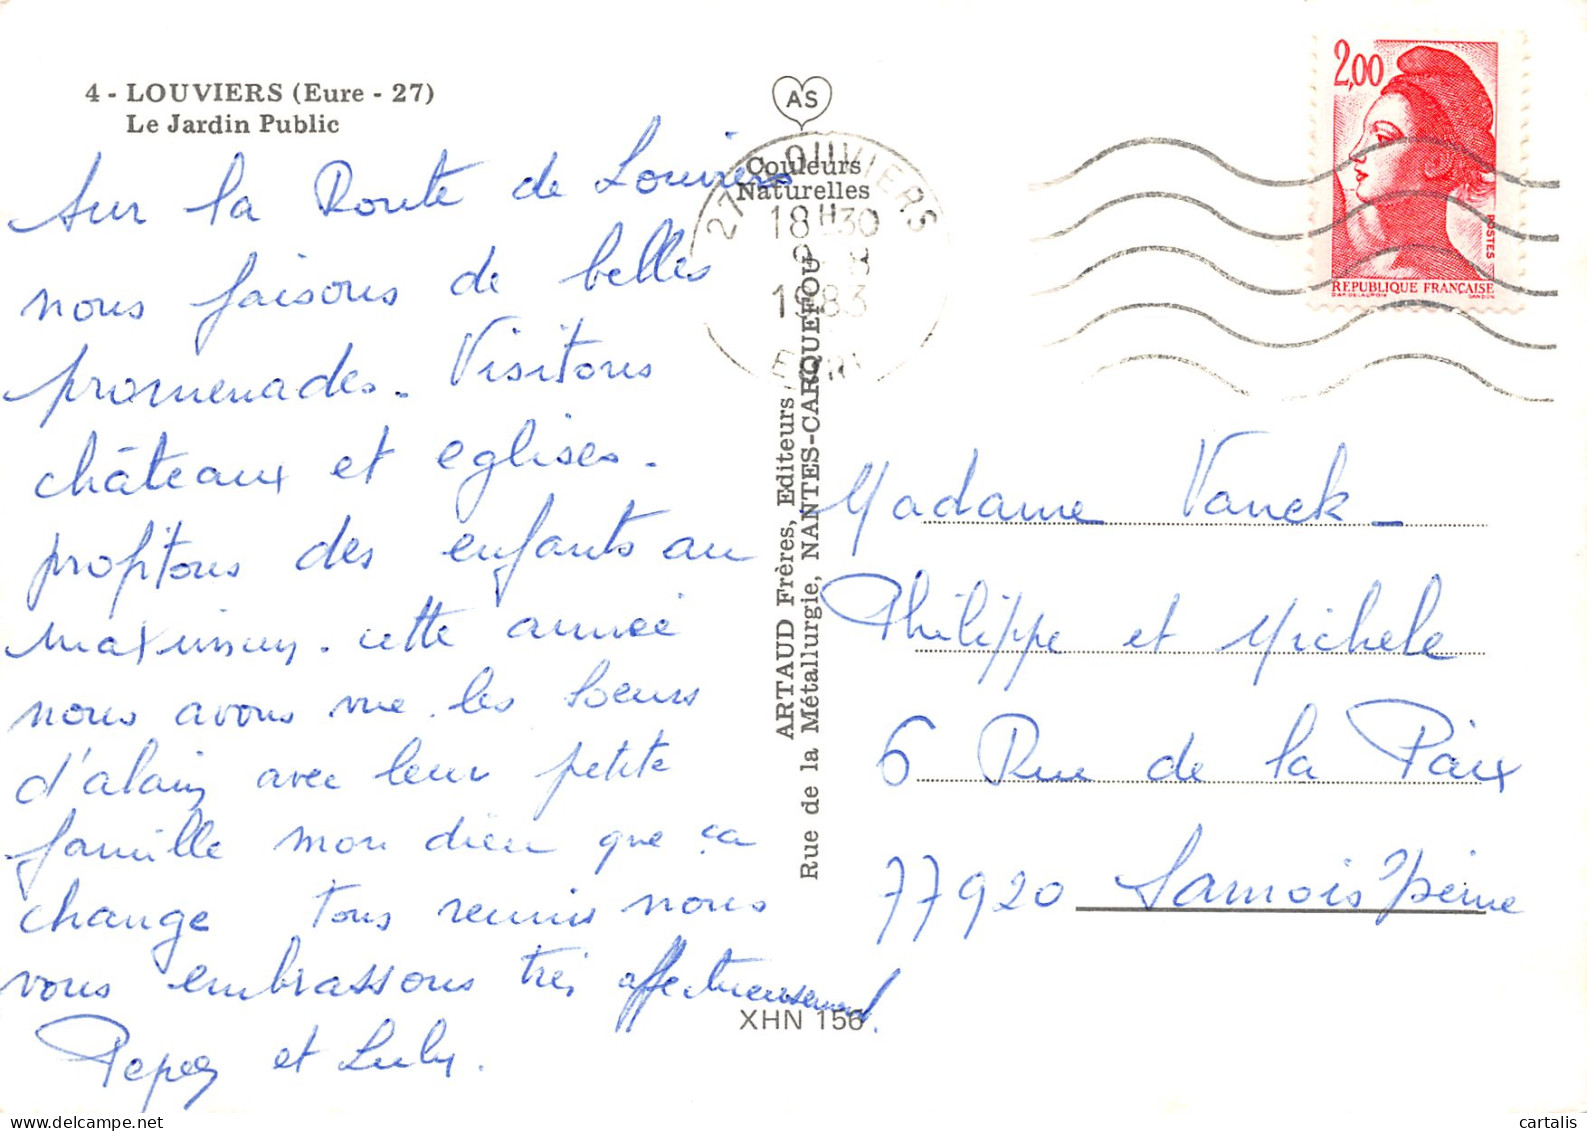 4 - LOUVIERS (Eure - 27)
Le Jardin Public
Sur la Route de Louviers
nous faisons de belles
promenades. Visitons
châteaux et eglises.
profitons des enfants au
maximum. cette année
nous avons vue les soeurs
d'alain avec leur petite
famille mon dieu que ça
change tous reunis nous
vous embrassons très affectueusement.
et Luly.
AS
Couleurs
Naturelles
27 LOUVIERS
18H30
1983
EURE
ARTAUD Frères, Editeurs
Rue de la Métallurgie, NANTES-CARQUEFOU
XHN 156
2,00
POSTES
REPUBLIQUE FRANÇAISE
D'AP. DELACROIX GANDON
Madame Vanek -
Philippe et Michele
6 Rue de la Paix
77920 Samois s/seine
cartalis